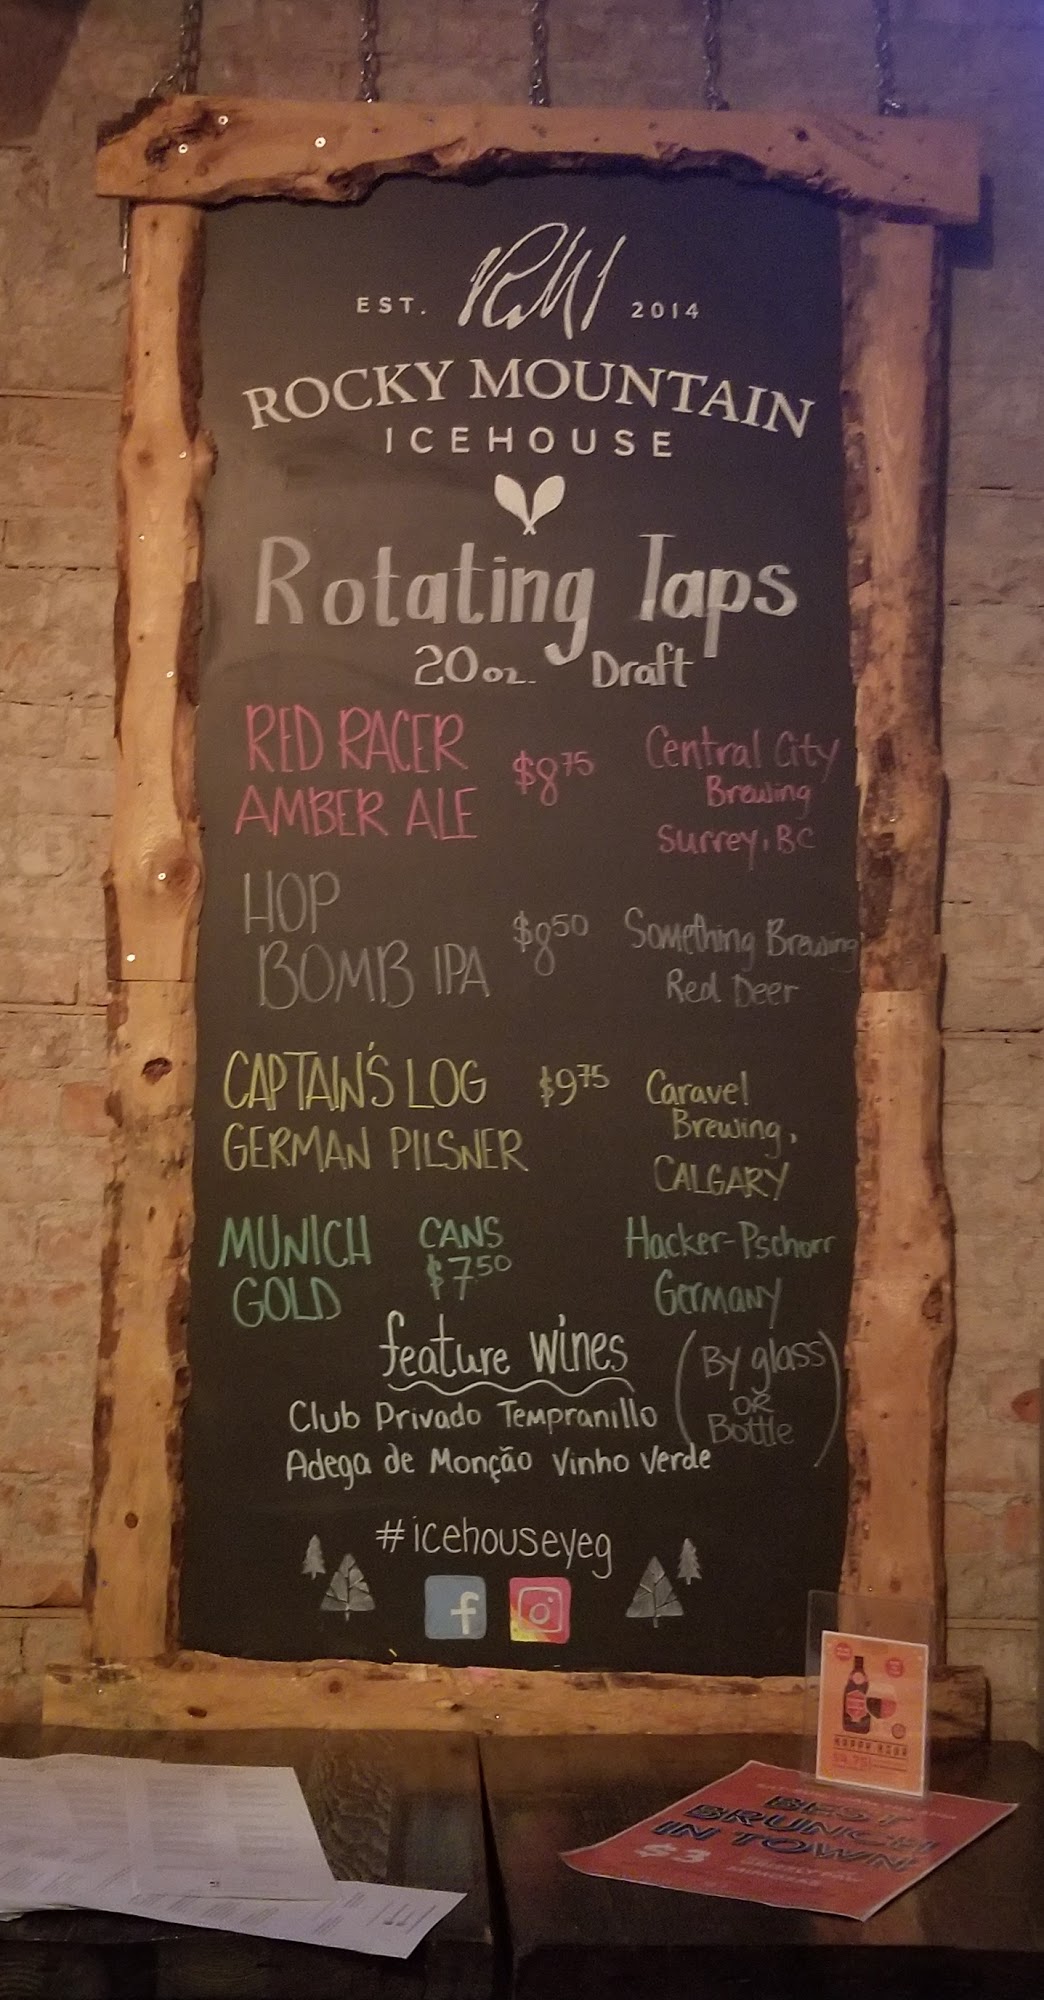 EST. RMI 2014
ROCKY MOUNTAIN
ICEHOUSE
Rotating Taps
20 oz. Draft
RED RACER
AMBER ALE
$8.75
Central City
Brewing
Surrey, BC
HOP
BOMB IPA
$8.50
Something Brewing
Red Deer
CAPTAIN'S LOG
GERMAN PILSNER
$9.75
Caravel
Brewing,
CALGARY
MUNICH
GOLD
CANS
$7.50
Hacker-Pschorr
Germany
feature wines
(By glass
OR
Bottle)
Club Privado Tempranillo
Adega de Monção Vinho Verde
#icehouseyeg
f
HAPPY HOUR
BEST
BRUNCH
IN TOWN
$3